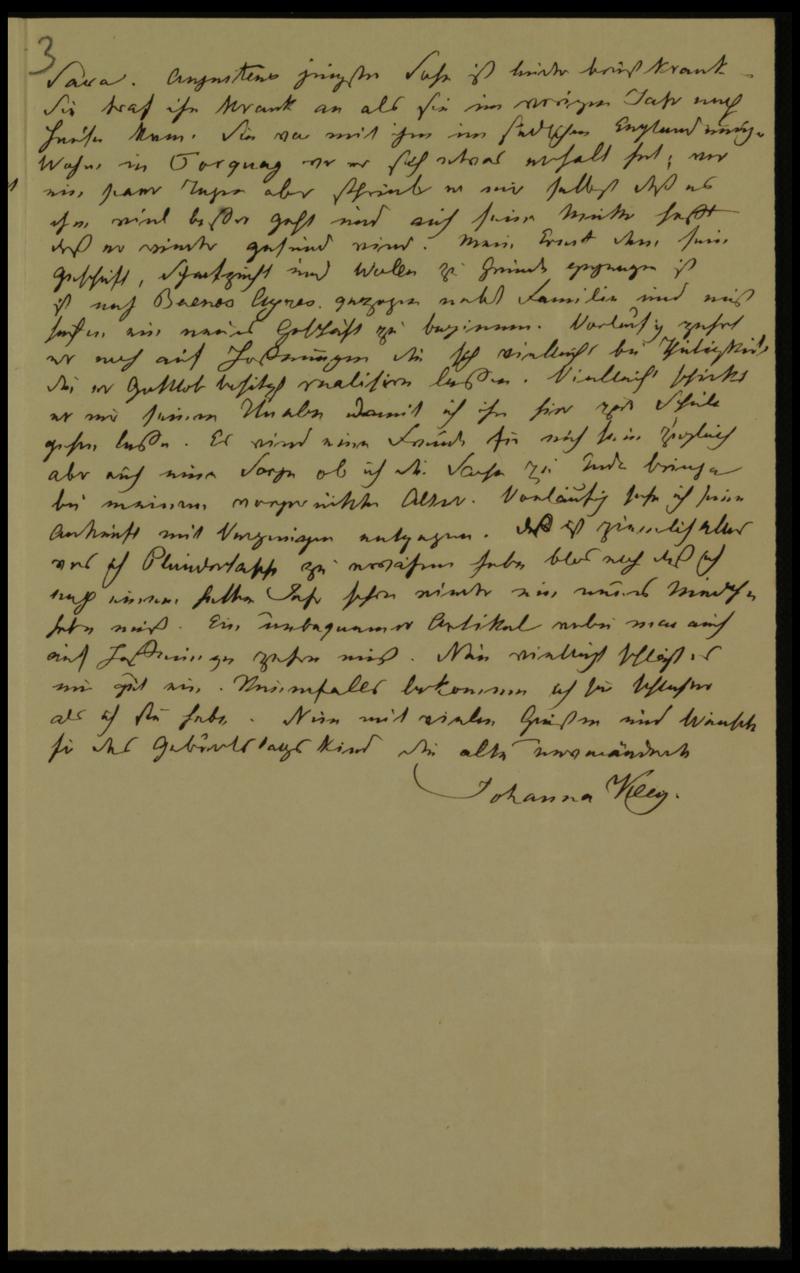 3
Sara. Augustens jüngster Sohn ist leider brustkrank.
Sie traf ihn krank an als sie im vorigen Jahr nach
Hause kam. Sie war mit ihm im südlichen England einige
Wochen in Torquay wo er sich etwas erholt hat; vor
ein paar Tagen aber schrieb er mir selbst daß es
ihm viel besser geht und auch seine Mutter hofft
daß er wieder gesund wird. Mein Ernst dem sein
Geschäft, Schafzucht und Wollen zu Grunde gegangen ist
ist nach Buenos Ayres gezogen nebst Familie und muß
suchen ein neues Geschäft zu beginnen. Vorläufig zehrt
er noch auf Hoffnungen die sich vielleicht bei Thätigkeit
die er Gottlob besitzt realisiren lassen. Vielleicht schickt
er mir seinen Knaben damit ich ihn hier zur Schule
gehen lasse. Es wird eine Freude für mich sein zugleich
aber auch eine Sorge ob ich die Sache zu Ende bringe
bei meinem vorgerückten Alter. Vorläufig sehe ich seiner
Ankunft mit Vergnügen entgegen. Das ist ziemlich alles
was ich Plaudertasche zu erzählen habe blos noch daß ich
nach einem halben Jahr schon wieder ein neues Mädchen
haben muß. Ein unbequemer Artikel wobei man auch
auf Hoffnungen zehren muß. Nun vielleicht schlägt es
mir gut ein. Keinenfalls bekommen ich sie schlechter
als ich sie habe. Nun mit vielen Grüßen und Wünschen
für das Geburtstags Kind die alte unveränderte
Johanna Kleg.